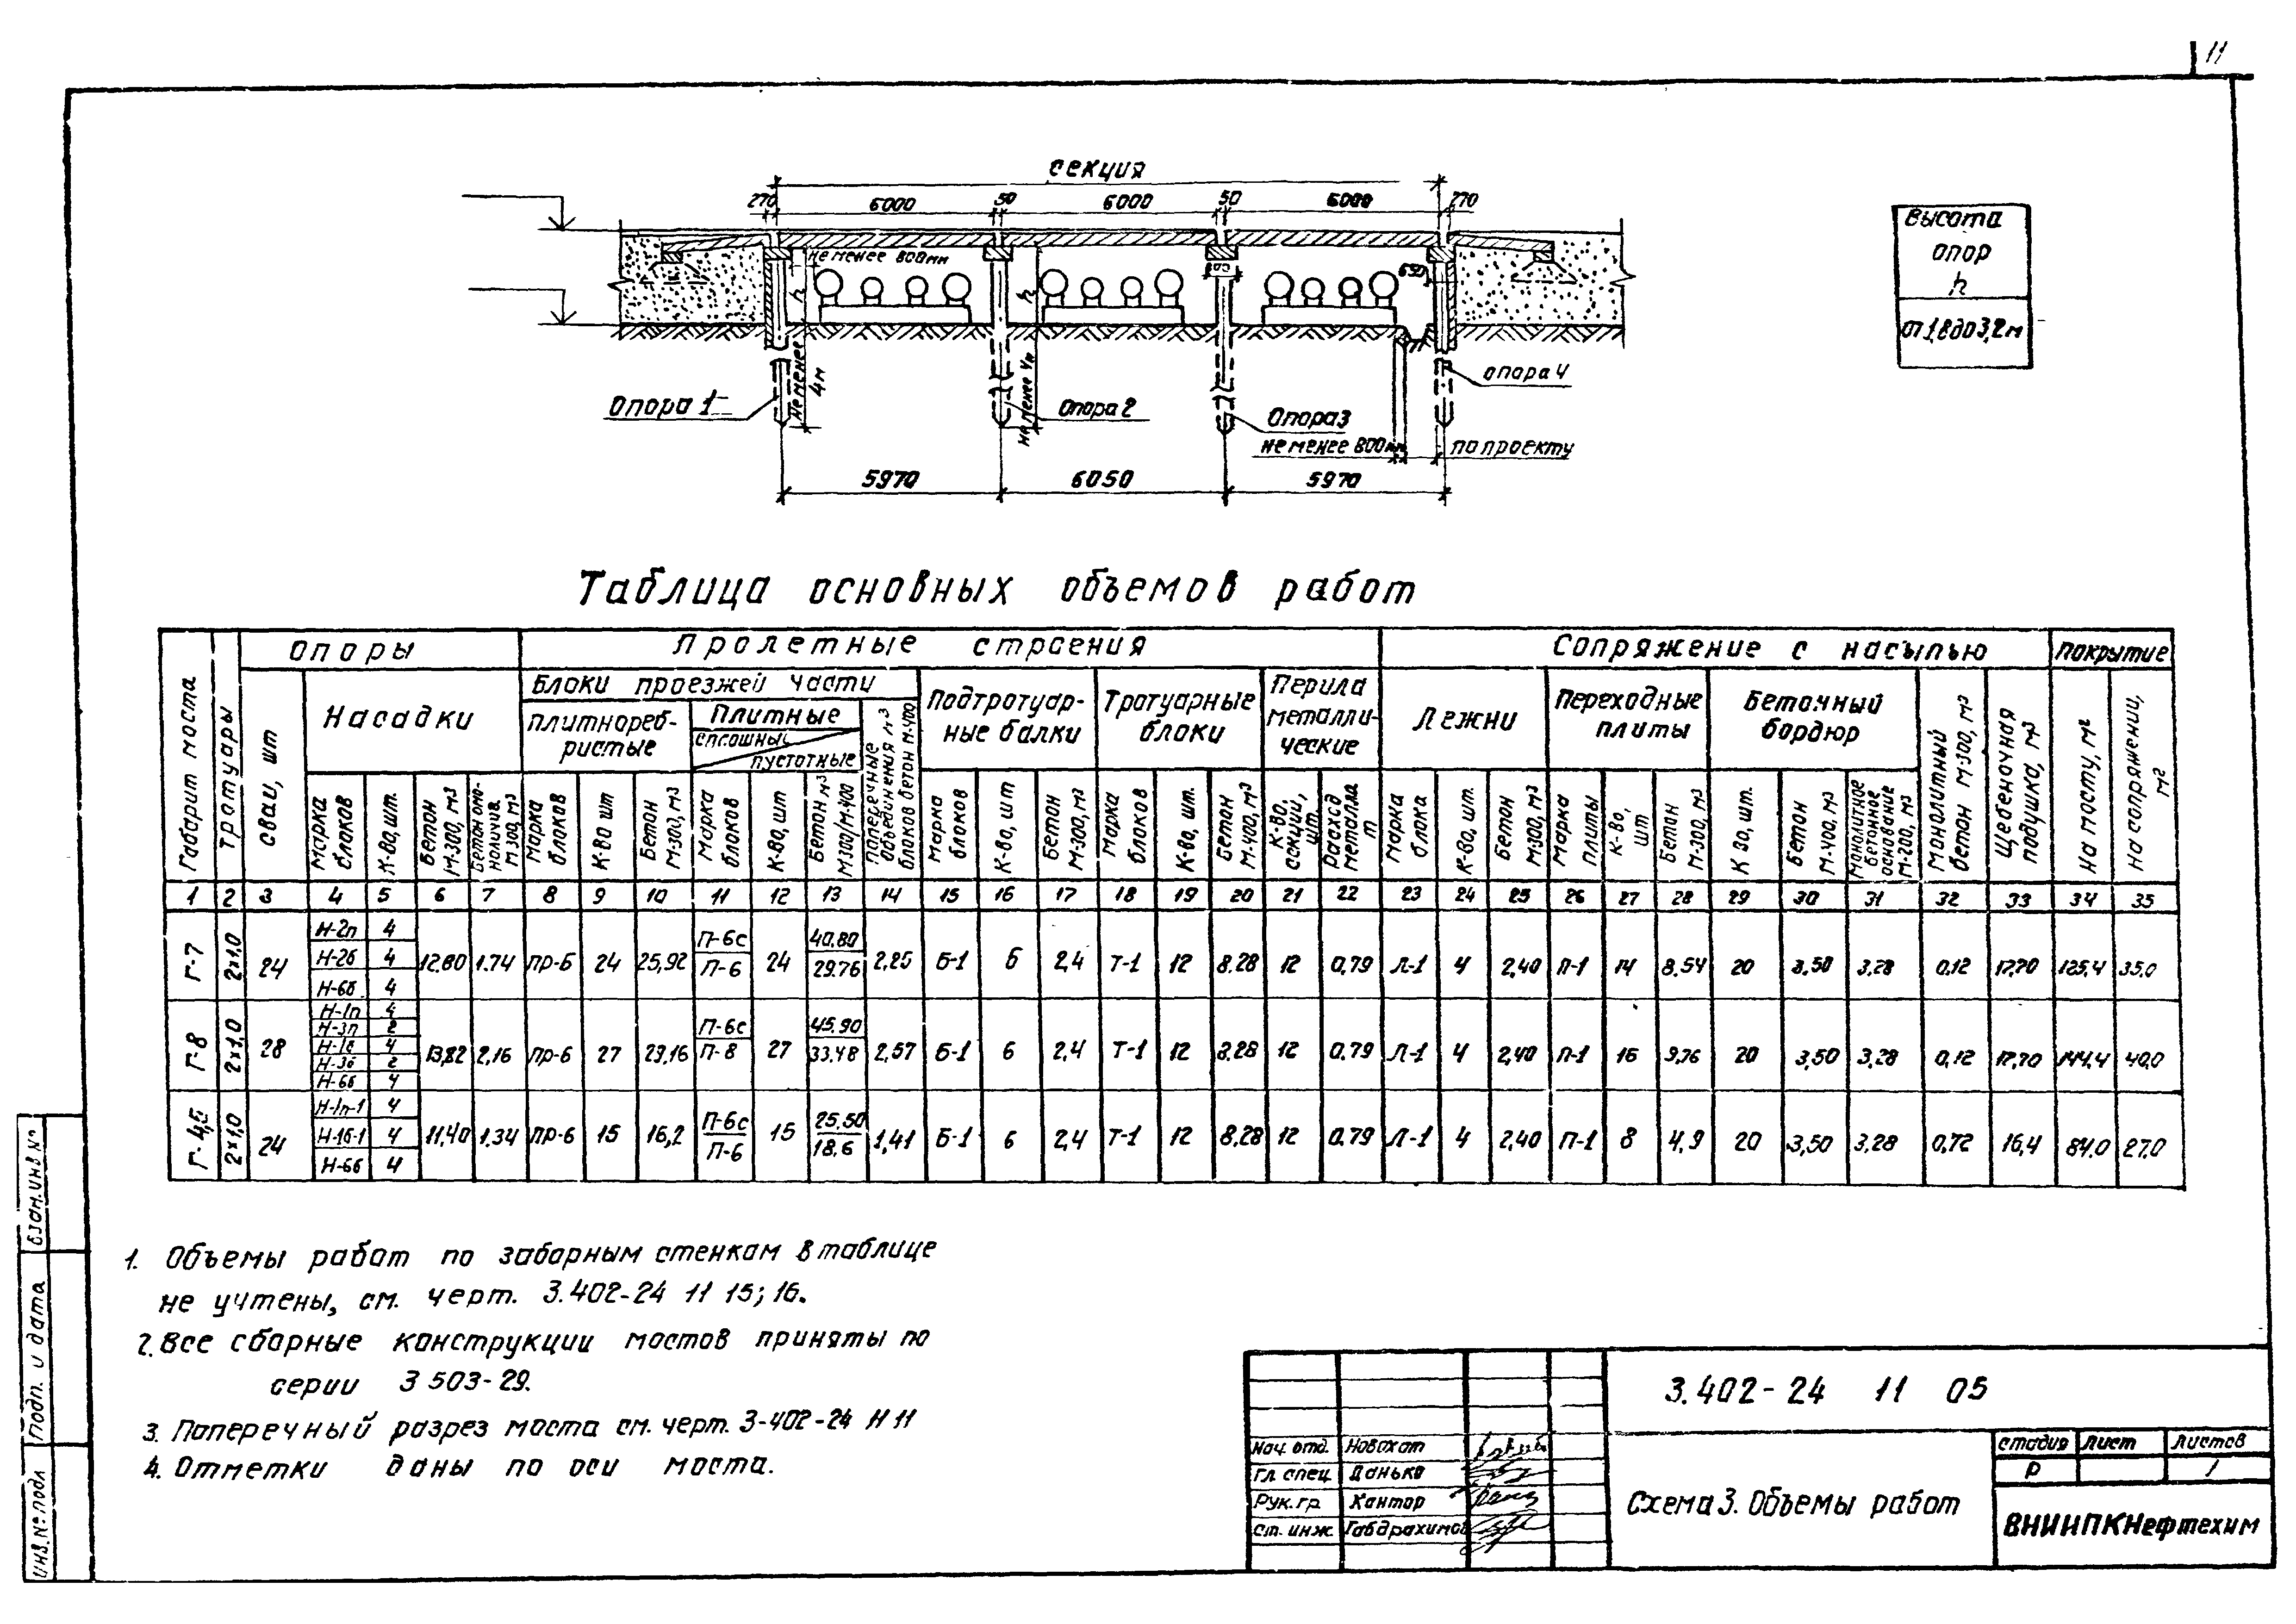 11
секция
270 6000 50 6000 50 6000 270
не менее 800мм
h
h
650
не менее 4м
не менее 4м
Опора 1
Опора 2
Опора 3
опора 4
не менее 800мм
по проекту
5970 6050 5970
Высота
опор
h
от 1,8 до 3,2 м
Таблица основных объемов работ
Габарит моста
Тротуары
Опоры
Пролетные строения
Сопряжение с насыпью
Покрытие
сваи, шт
Насадки
Блоки проезжей части
плитнореб-
ристые
Плитные
сплошные
пустотные
Поперечные объединения м³ блоков бетон М-400
Подтротуар-
ные балки
Тротуарные
блоки
Перила
металли-
ческие
Лежни
Переходные
плиты
Бетонный
бордюр
Монолитный бетон М-300, м³
Щебеночная подушка, м³
На мосту, м²
На сопряжении, м²
Марка блоков
К-во, шт.
Бетон М-300, м³
Бетон омоноличив. М300, м³
Марка блоков
К-во шт
Бетон М-300, м³
Марка блоков
К-во, шт
Бетон м³ М300/М-400
Марка блоков
К-во, шт
Бетон М-300, м³
Марка блоков
К-во, шт.
Бетон М-400, м³
К-во, секции, шт.
Расход металла т
Марка блока
К-во, шт.
Бетон М300, м³
Марка плиты
К-во, шт
Бетон М-300, м³
К во, шт.
Бетон М-400, м³
Монолитное бетонное основание М-200, м³
1 2 3 4 5 6 7 8 9 10 11 12 13 14 15 16 17 18 19 20 21 22 23 24 25 26 27 28 29 30 31 32 33 34 35
Г-7 2х1,0 24 Н-2п 4 Н-2б 4 Н-6б 4 12.80 1.74 пр-6 24 25,92 П-6с П-6 24 40.80 29.76 2,25 Б-1 6 2,4 Т-1 12 8.28 12 0.79 Л-1 4 2,40 П-1 14 8.54 20 3,50 3,28 0,12 17,70 125,4 35.0
Г-8 2х1,0 28 Н-1п 4 Н-3п 2 Н-1б 4 Н-3б 2 Н-6б 4 13,82 2,16 пр-6 27 29,16 П-6с П-8 27 45.90 33.48 2,57 Б-1 6 2,4 Т-1 12 8.28 12 0.79 Л-1 4 2,40 П-1 16 9,76 20 3,50 3,28 0,12 17,70 144,4 40,0
Г-4,5 2х1,0 24 Н-1п-1 4 Н-1б-1 4 Н-6б 4 11,40 1.34 пр-6 15 16,2 П-6с П-6 15 25.50 18.6 1,41 Б-1 6 2,4 Т-1 12 8.28 12 0.79 Л-1 4 2,40 П-1 8 4,9 20 3,50 3,28 0,72 16,4 84.0 27.0
1. Объемы работ по заборным стенкам в таблице
не учтены, см. черт. 3.402-24 11 15; 16.
2. Все сборные конструкции мостов приняты по
серии 3 503-29.
3. Поперечный разрез моста см. черт. 3-402-24 Н 11
4. Отметки даны по оси моста.
Взам. инв №
Подп. и дата
Инв. № подл
3.402-24 11 05
Нач. отд. Новохат
Гл спец Данько
Рук. гр Кантор
Ст. инж. Габдрахимов
Схема 3. Объемы работ
стадия лист Листов
Р 1
ВНИИПКНефтехим